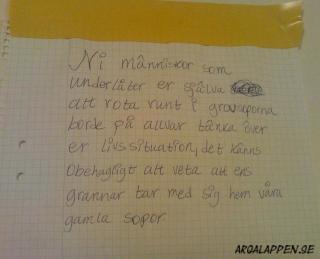 Ni människor som
underlåter er själva
att rota runt i grovsoporna
borde på allvar tänka över
er livssituation, det känns
obehagligt att veta att ens
grannar tar med sig hem våra
gamla sopor
ARGALAPPEN.SE